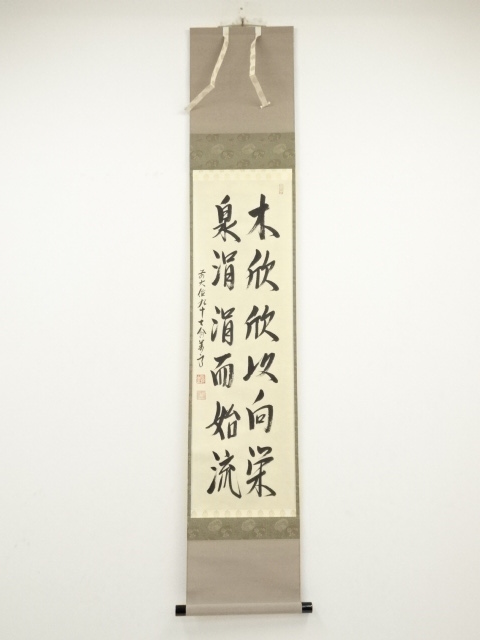 木欣欣以向栄
泉涓涓而始流